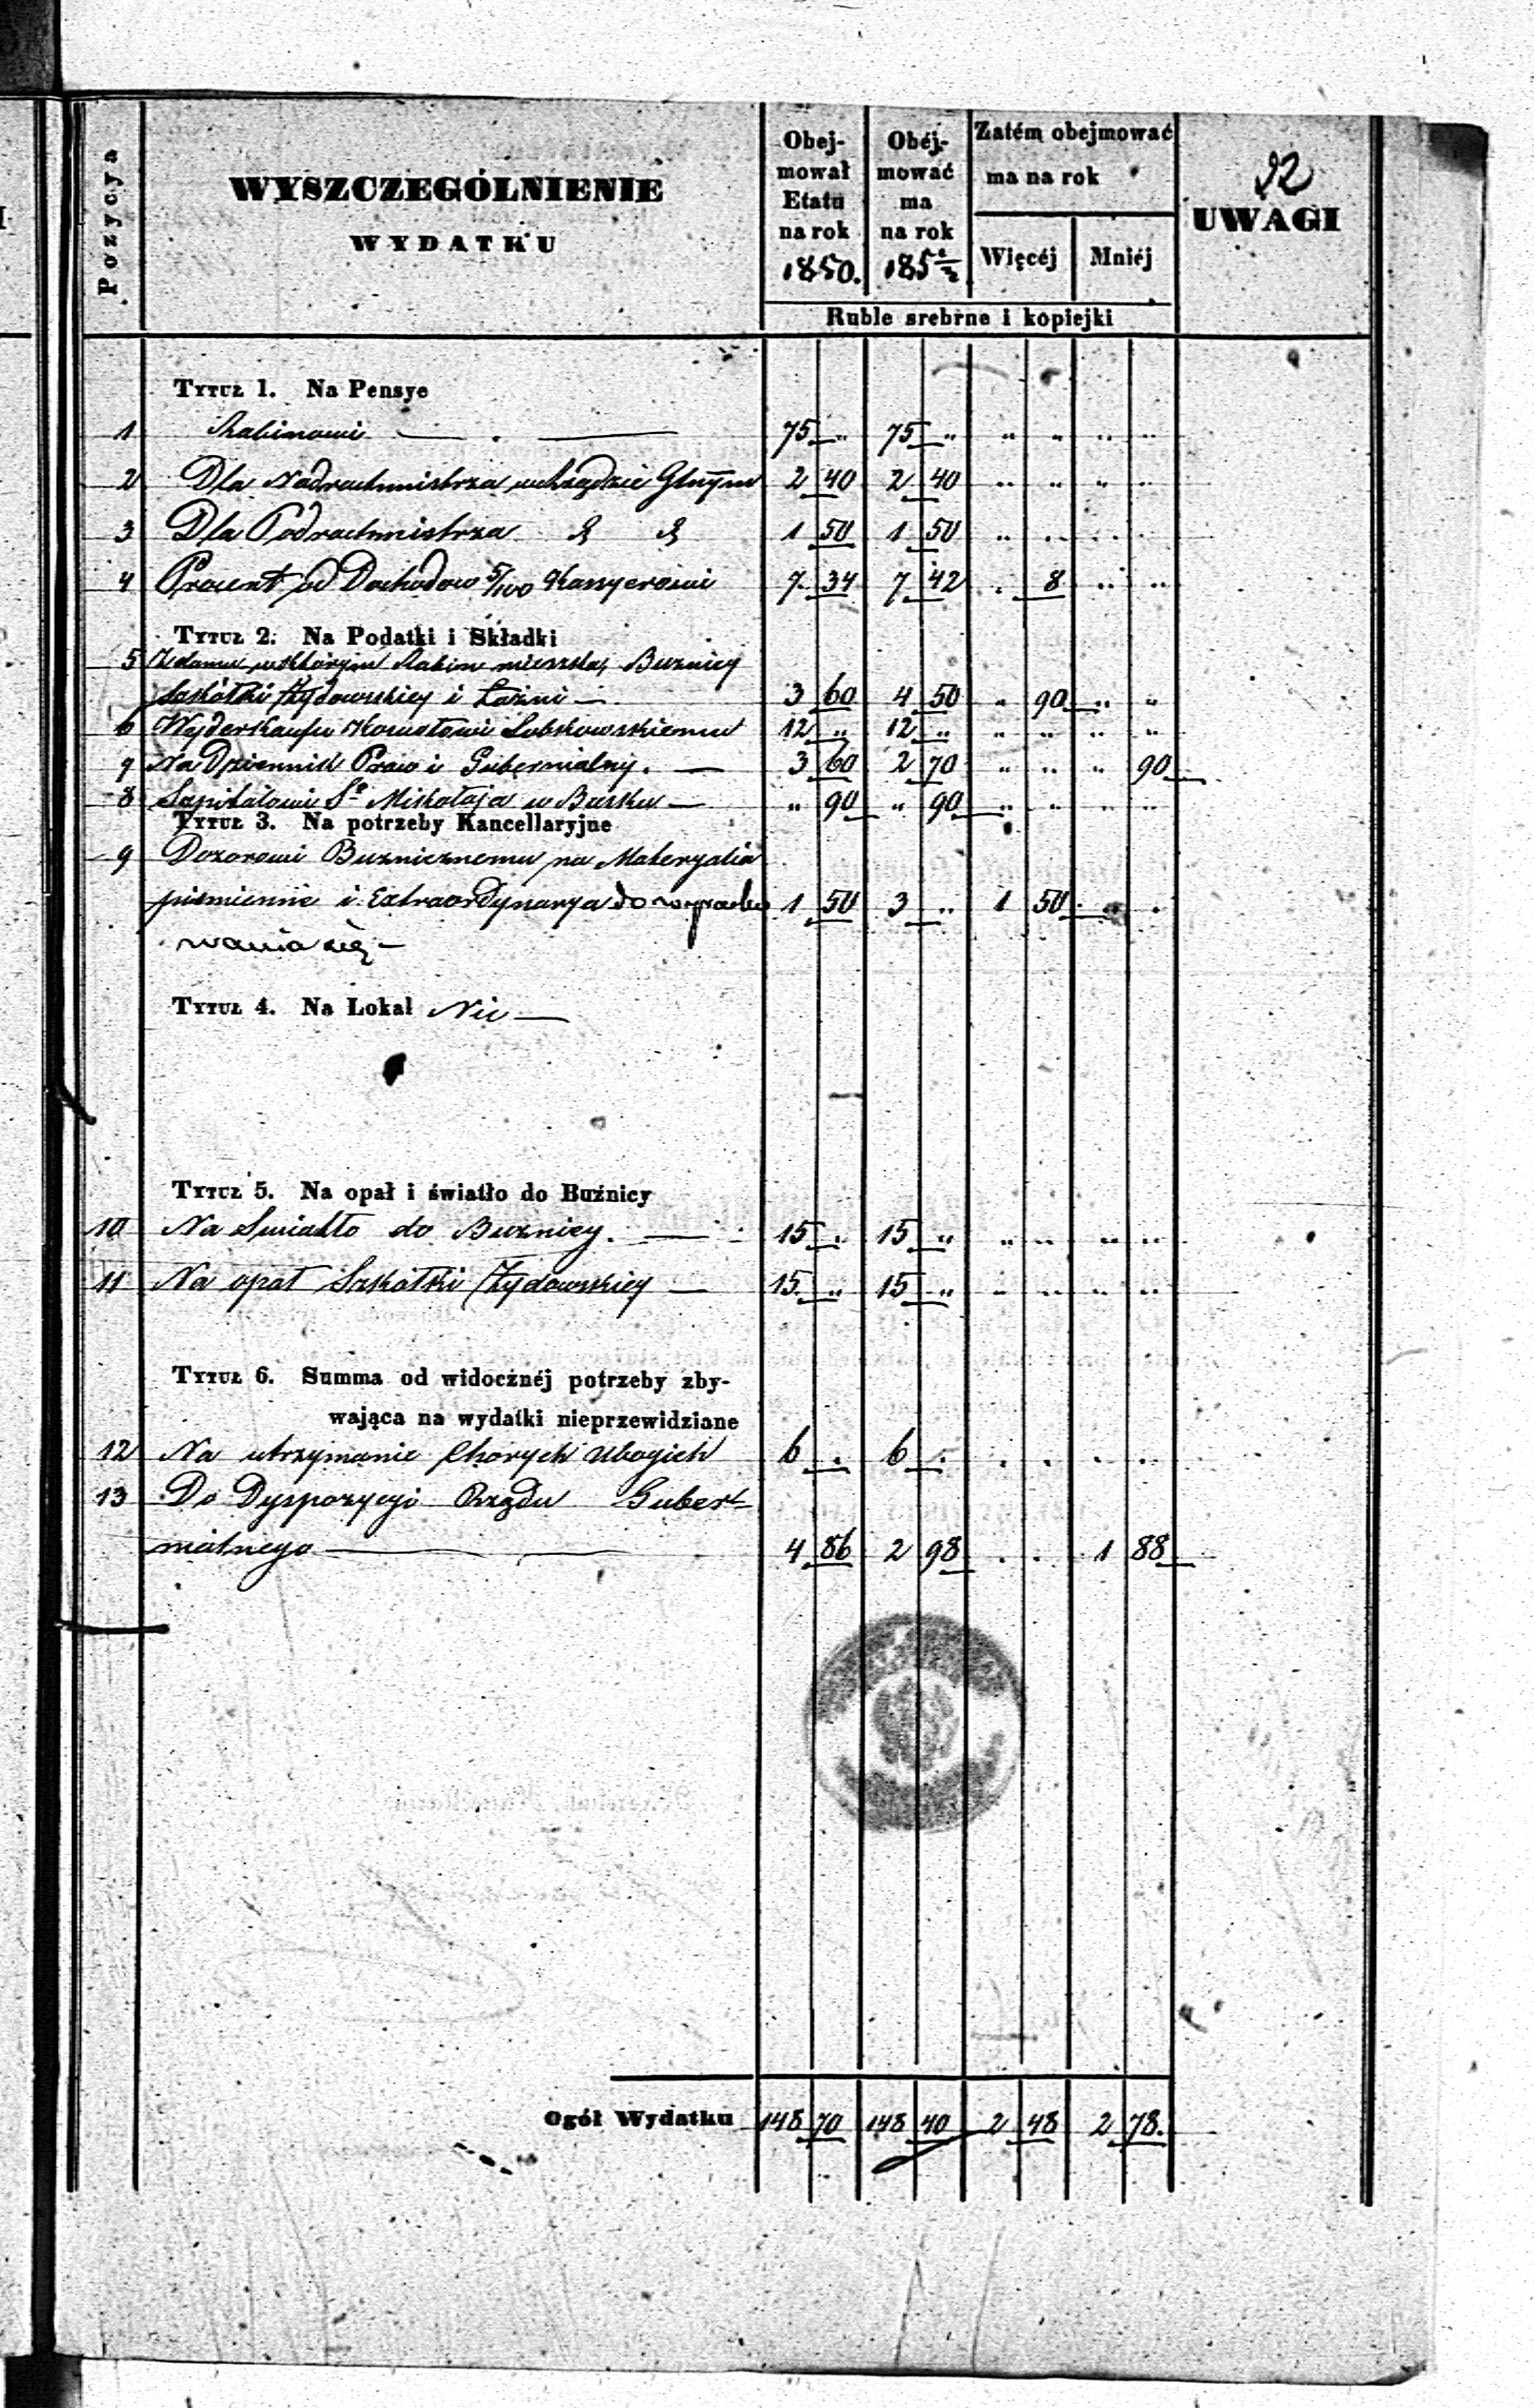 92
Pozycya
WYSZCZEGÓLNIENIE
WYDATKU
Obej-
mował
Etatu
na rok
1850.
Obéj-
mować
ma
na rok
185 1/2
Zatém obejmować
ma na rok
Więcéj
Mniéj
UWAGI
Ruble srebrne i kopiejki
Tytuł 1. Na Pensye
1 Rabinowi — 75 „ 75 „ „ „ „ „
2 Dla Nadrachmistrza w Rządzie Glnym 2 40 2 40 „ „ „ „
3 Dla Podrachmistrza 1 50 1 50 „ „ „ „
4 Procent od Dochodow 5/100 Kassyerowi 7 34 7 42 „ 8 „ „
Tytuł 2. Na Podatki i Składki
5 Z domu w którym Rabin mieszka, Buznicy
Szkółki Żydowskiey i Łaźni — 3 60 4 50 „ 90 „ „
6 Wyderkaufu Lubkowskiemu 12 „ 12 „ „ „ „ „
7 Na Dziennik Praw i Gubernialny. — 3 60 2 70 „ „ „ 90
8 Szpitalowi Sgo Mikołaja w Busku — „ 90 „ 90 „ „ „ „
Tytuł 3. Na potrzeby Kancellaryjne
9 Dozorowi Buznicznemu na Materyalia
piśmienne i Extraordynarya do wyracho 1 50 3 „ 1 50 „ „
wania się —
Tytuł 4. Na Lokal Nic —
Tytuł 5. Na opał i światło do Buźnicy
10 Na Swiatło do Buznicy. — 15 „ 15 „ „ „ „ „
11 Na opał Szkółki Żydowskiey — 15 „ 15 „ „ „ „ „
Tytuł 6. Summa od widocznéj potrzeby zby-
wająca na wydatki nieprzewidziane
12 Na utrzymanie Chorych Ubogich 6 „ 6 „ „ „ „ „
13 Do Dyspozycyi Rządu Guber-
nialnego — 4 86 2 98 „ „ 1 88
Ogół Wydatku 148 70 148 40 2 48 2 78.